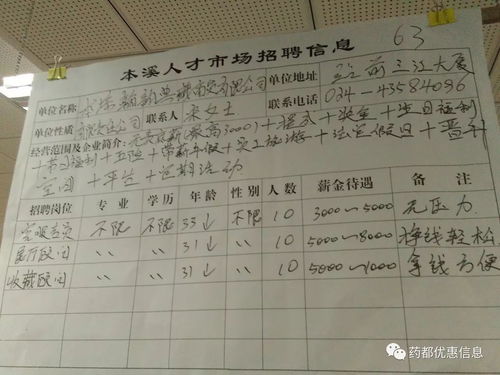 63
本溪人才市场招聘信息
单位名称 本溪 商贸有限公司 单位地址 站前三江大厦
单位性质 有限公司 联系人 宋女士 联系电话 024-43584096
经营范围及企业简介: 无责底薪(最高3000)+提成+奖金+生日福利
+节日福利+五险+带薪年假+员工旅游+法定假日+晋升
空间+ +定期活动
招聘岗位 专业 学历 年龄 性别 人数 薪金待遇 备注
客服专员 不限 不限 35↓ 不限 10 3000~5000 无压力
医疗顾问 〃 〃 31↓ 〃 10 5000~8000 挣钱轻松
收藏顾问 〃 〃 31↓ 〃 10 5000~1000 拿钱方便
药都优惠信息